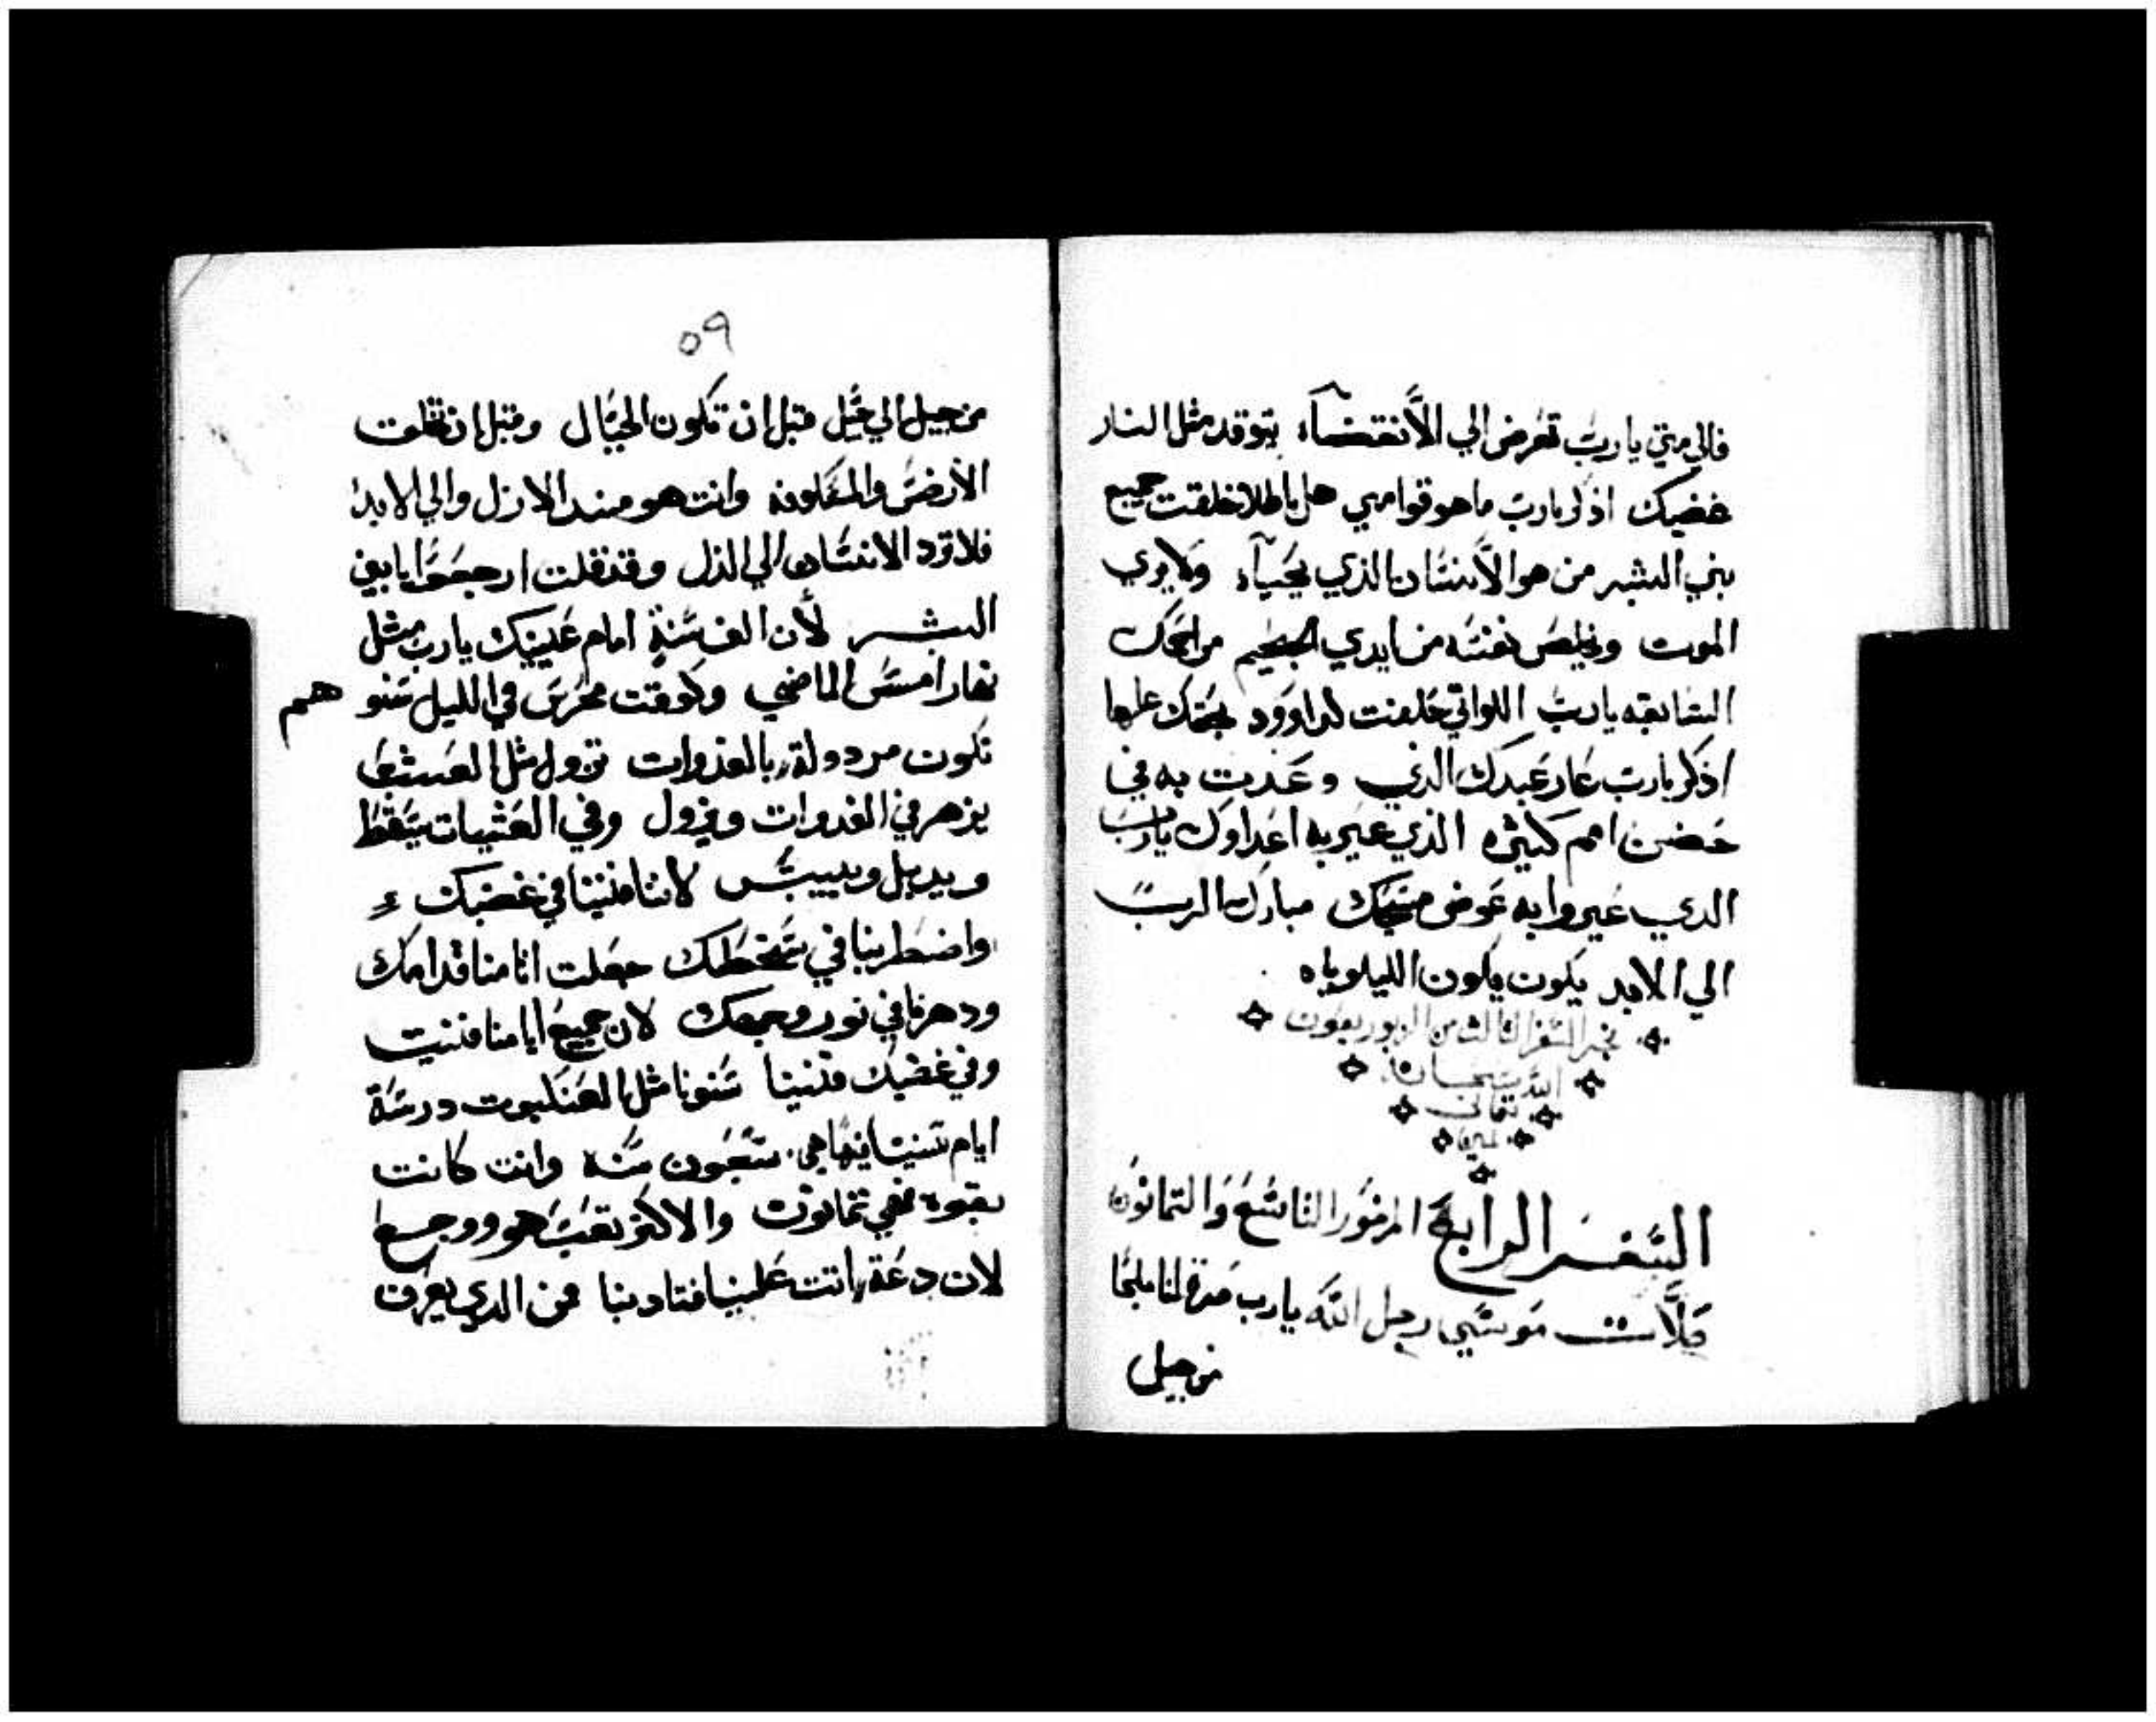 فالي متي يا رب تعرض الي الأنقضآء يتوقد مثل النار
غضبك اذكر يارب ما هو قوامي هل باطلا خلقت جميع
بني البشر من هو الأنسان الذي يحيآء ولا يري
الموت ويخلص نفسه من ايدي الجحيم مراحمك
السابقه يا رب اللواتي حلفت لداوود بحقك
اذكر يارب عار عبدك الذي وعدت به في
حضن امم كثيره الذي عير به اعداوك يا رب
الدي عيروا به عوض مسيحك مبارك الرب
الي الابد يكون يكون الليلوياه
السفر الثالث من الزبور بعون
الله سبحانه
تعالي
امين
السفر الرابع المزمور التاسع والتمانون
صلاة موسي رجل الله يارب صرة لنا ملجا
من جيل
٥٩
من جيل الي جيل قبل ان تكون الجبال وقبل ان تخلقت
الأرض والمسكونه وانت هو منذ الازل والي الابد
فلا ترد الانسان الي الذل وقد قلت ارجعوا يا بني
البشر لأن الف سنة امام عينيك يا رب مثل
نهار امس الماضي وكوقت محرس في الليل سنو هم
تكون مردولة بالغدوات تزول مثل العشب
يزهر في الغدوات ويزول وفي العشيات يسقط
ويدبل وييبس لاننا فنينا في غضبك
واضطربنا في سخطك جعلت اثامنا قدامك
ودهرنا في نور وجهك لان جميع ايامنا فنيت
وفي غضبك فنينا سنونا مثل العنكبوت درسة
ايام سنينا فيها هي سبعون سنه وانت كانت
بقوه فهي تمانون والاكثر تعب هو ووجع
لان دعة اتت علينا فتادبنا فمن الدي يعرف